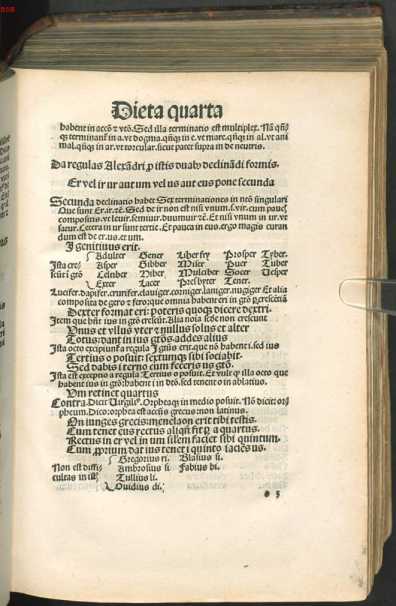 Dieta quarta
habent in accũ ⁊ vtõ. Sed illa terminatio est multiplex. Nã qñqꝫ
terminant᷑ in a. vt dogma. qñqꝫ in e. vt mare. qñqꝫ in al. vt ani
mal. qñqꝫ in ar. vt torcular. sicut patet supra in de neutris.
Da regulas Alexãdri ꝓ istis duabꝰ declinãdi formis.
Er vel ir ur aut um vel us aut eus pone secunda
Secunda declinatio habet Sex terminationes in ntõ singulari
Que sunt Er. ir. ⁊c̃. Sed de ir non est nisi vnum. s. vir. cum
compositis. vt leuir. semiuir. duumuir ⁊c̃. Et nisi vnum in ur. vt
satur. Cetera in ur sunt tertie. Et pauca in eus. ergo magis curan
dum est de er. us. et um.
I genitiuus erit.
Adulter Gener Liber fry Prosper Tyber.
Ista cre Asper Gibber Miser Puer Tuber
scũt i gtõ Celtiber Niber Mulciber Socer Vesper
Exter Lacer Presbyter Tener.
Lucifer. dapifer. crucifer. clauiger. corniger. laniger. nugiger Et alia
composita de gero ⁊ fero que omnia habent eri in gtõ
Dexter format eri: poteris quoqꝫ dicere dextri.
Item que hñt ius in gtõ crescũt. Alia nota sede non crescunt
Vnus et vllus vter ⁊ nullus solus et alter
Totus: dant in ius gtõs: addes alius
Ista octo excipiunt᷑ a regula I gtũs erit. que nõ habent i. sed ius
Tertius o posuit: sextumqꝫ sibi sociabit.
Sed dabis i terno cum feceris us gtõ.
Ista est exceptio a regula Tertius o posuit. Et vult qꝫ illa octo que
habent ius in gtõ: habent i in dtõ. sed tenent o in ablatiuo.
Vm retinet quartus
Contra. Dicit Virgiliꝰ. Orpheaqꝫ in medio posuit. Nõ dicit: or
pheum. Dico: orphea est accũs grecus: non latinus.
On iunges grecis: menelaon erit tibi testis.
Cum tenet eus rectus aliqñ fit a quartus.
Rectus in er vel in um silem faciet sibi quintum.
Cum ꝓprium dat ius tenet i quinto iaciẽs us.
Gregorius ri. Blasius si.
Non est diffi Ambrosius si Fabius bi.
cultas in ist Tullius li.
Ouidius di.